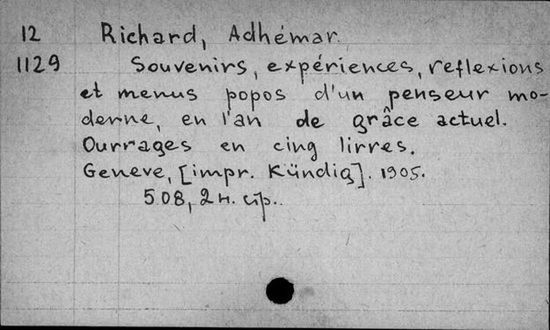 12 Richard, Adhémar.
1129 Souvenirs, expériences, reflexions
et menus popos d'un penseur mo-
derne, en l'an de grâce actuel.
Ourrages en cinq lirres.
Geneve, [impr. Kündig]. 1905.
508, 2 н. стр.